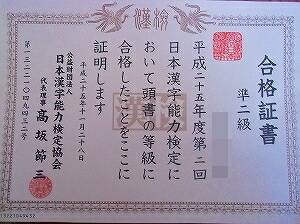 漢検
合格証書
準二級
平成二十五年度第二回
日本漢字能力検定に
おいて頭書の等級に
合格したことをここに
証明します
平成二十五年十一月二十八日
公益財団法人
日本漢字能力検定協会
代表理事 髙坂節三
第一三二二一〇四九四三二号
13221049432